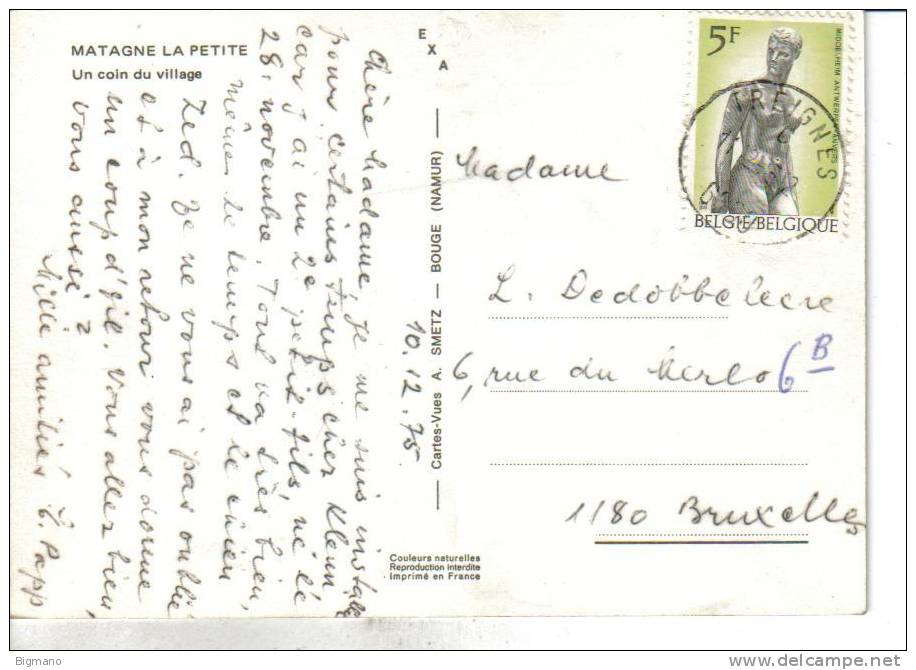 MATAGNE LA PETITE
Un coin du village
E
X
A
10.12.75.
Chère Madame, Je me suis installée
pour certains temps chez Klein
car j'ai un 2e petit-fils, né le
28 novembre. Tout va très bien,
même le temps et le chien
Zed. Je ne vous ai pas oublié
et à mon retour vous donne
un coup d'œil. Vous allez bien,
vous aussi?
Mille amitiés E. Papp
Cartes-Vues A. SMETZ — BOUGE (NAMUR)
Couleurs naturelles
Reproduction interdite
Imprimé en France
5F
MIDDELHEIM ANTWERPEN-ANVERS
BELGIE-BELGIQUE
TREIGNES
Madame
L. Dedobbeleere
6, rue du Merlo 6B
1180 Bruxelles
Bigmano
delcampe.net